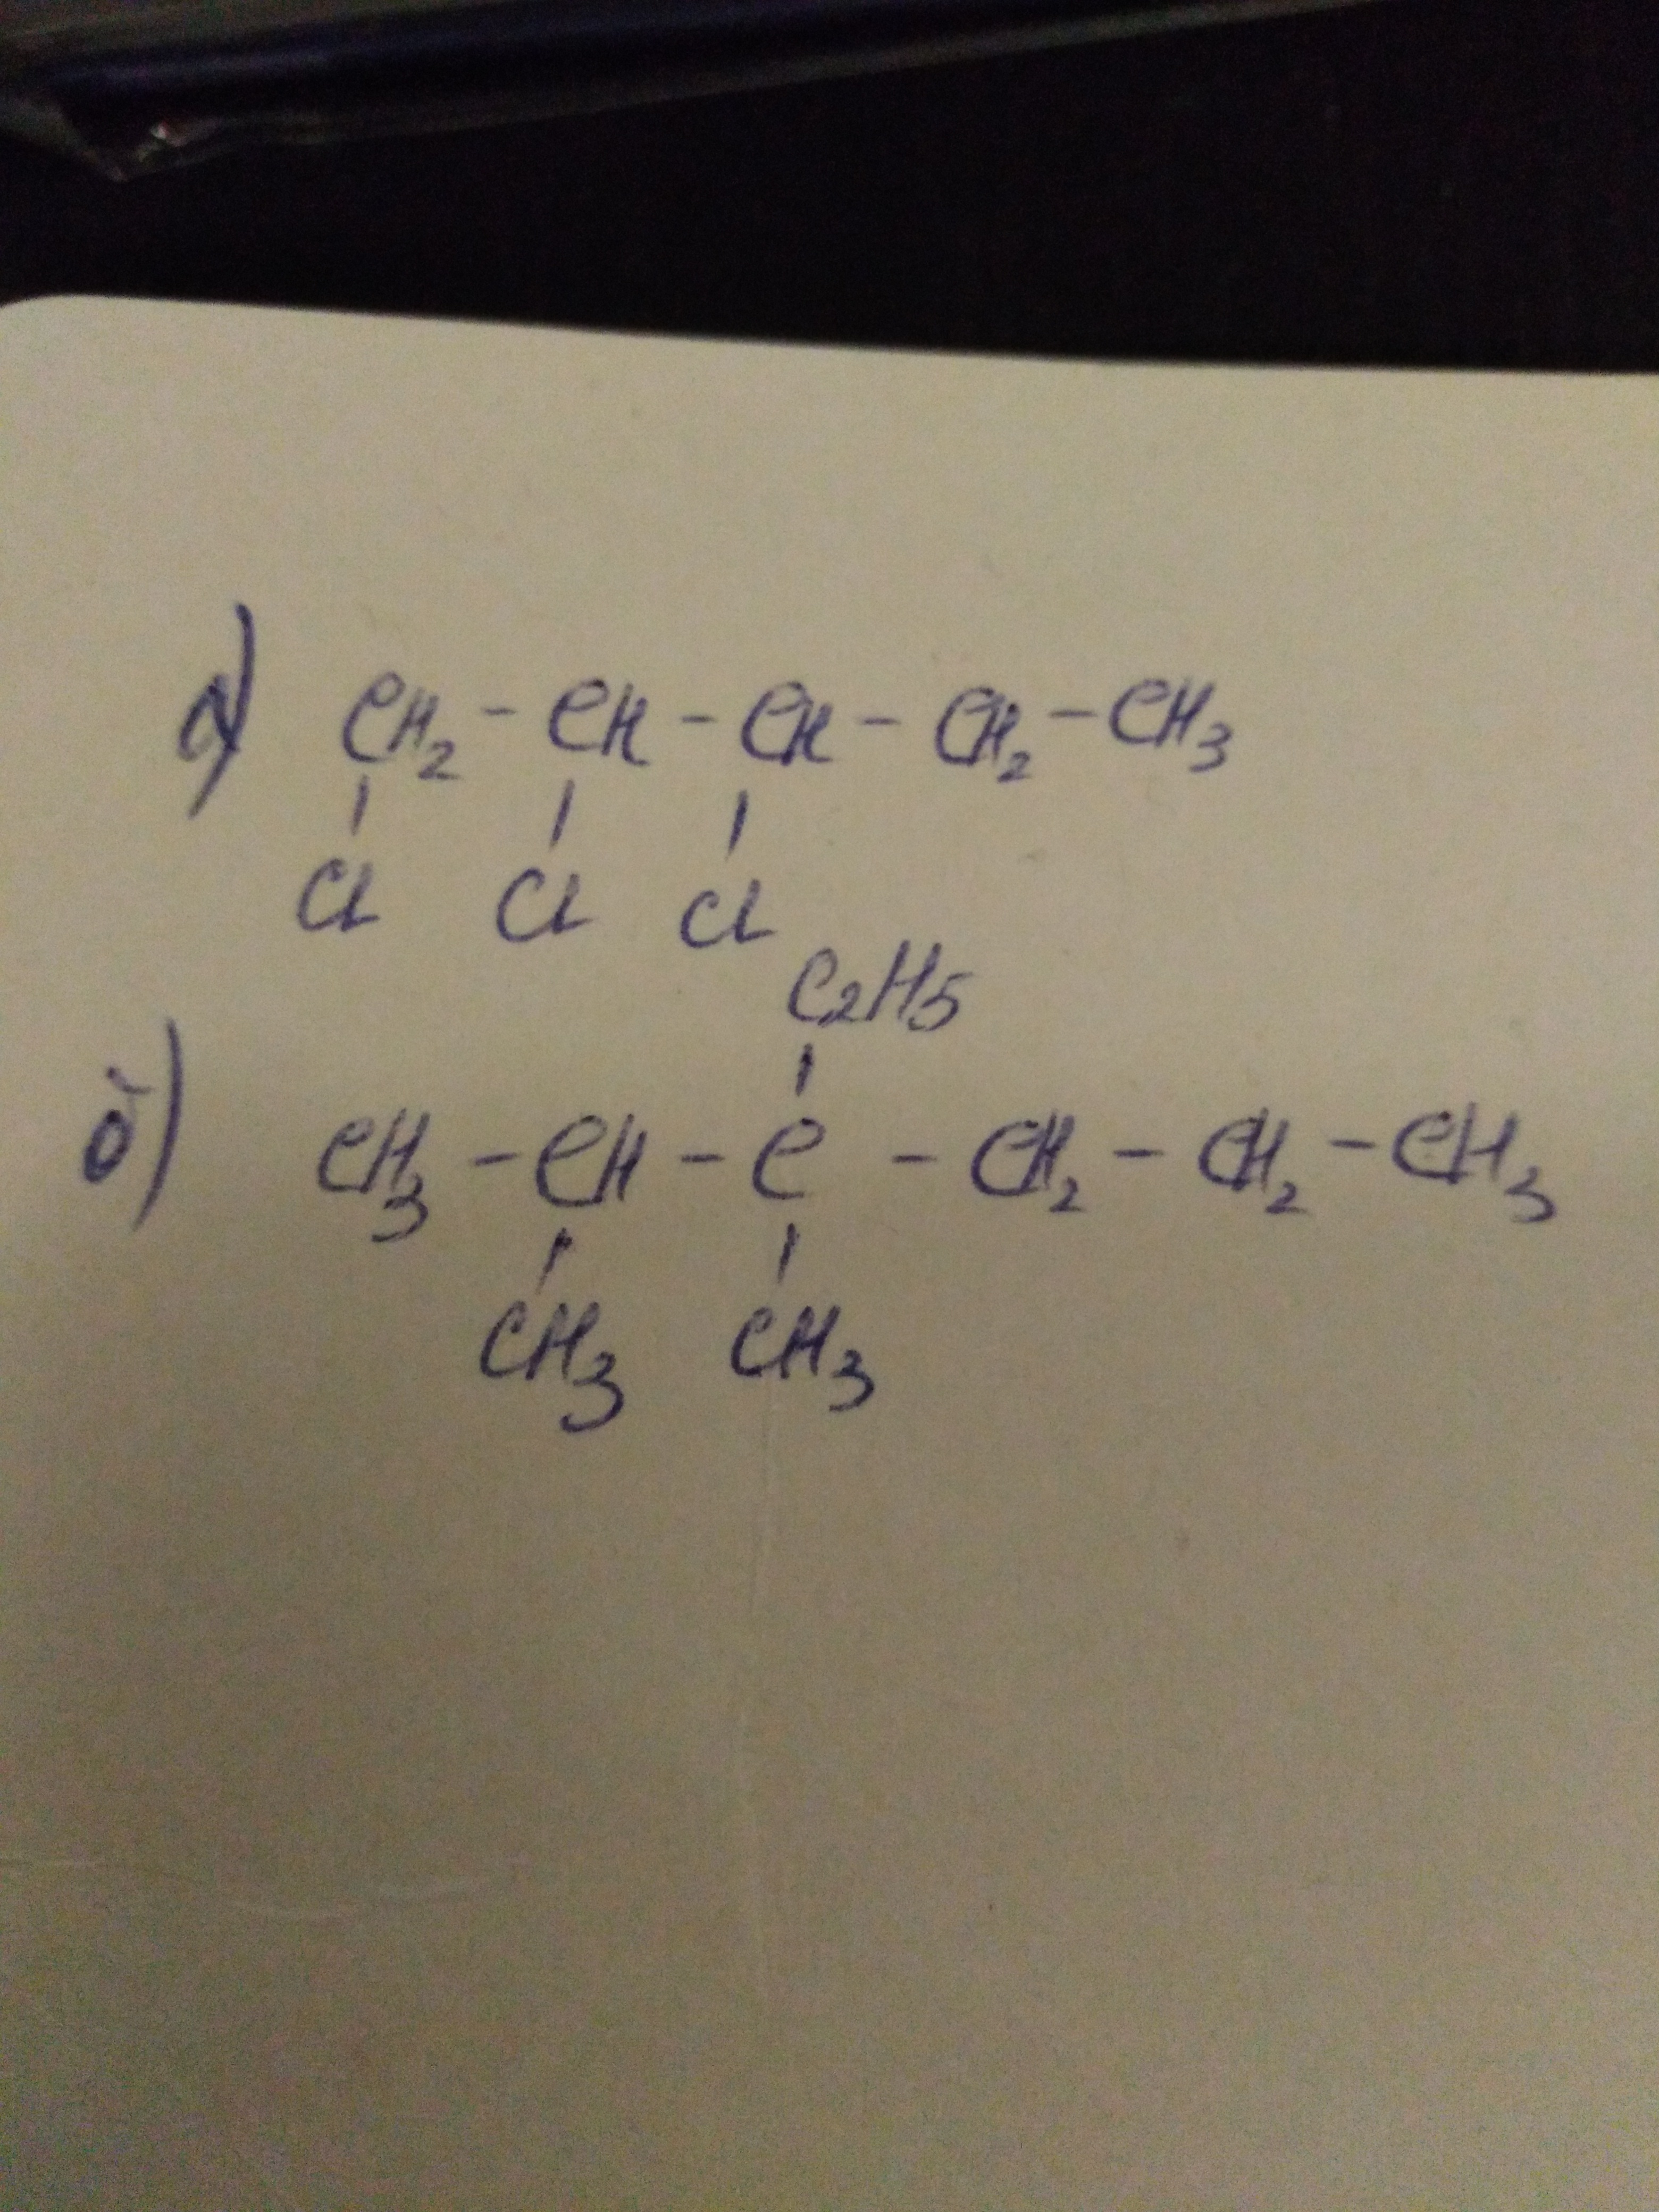 а) CH₂ - CH - CH - CH₂ - CH₃
Cl Cl Cl
C₂H₅
б) CH₃ - CH - C - CH₂ - CH₂ - CH₃
CH₃ CH₃